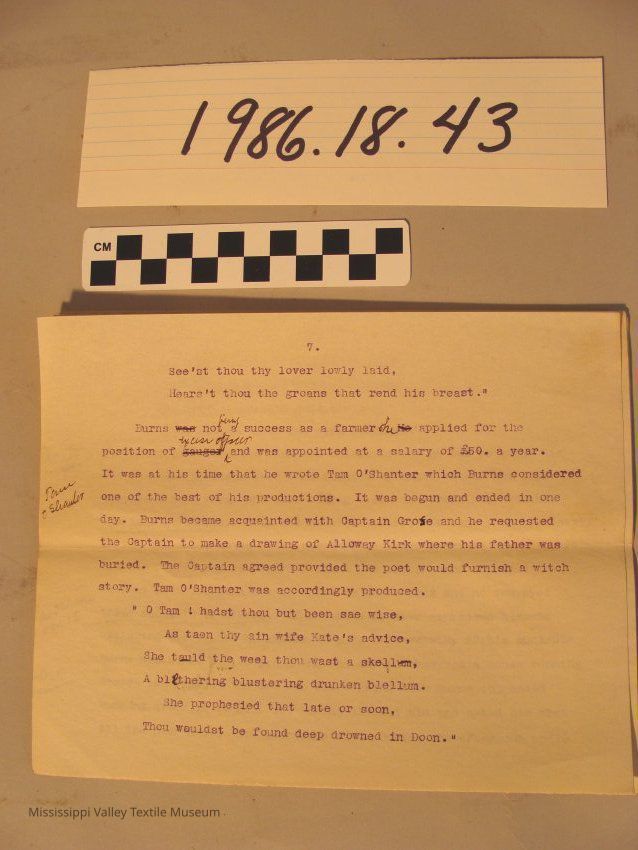 1986.18.43
CM
7.
See'st thou thy lover lowly laid,
Hears't thou the groans that rend his breast."
being
Burns was not a success as a farmer he He applied for the
excise officer
position of gauger and was appointed at a salary of £50. a year.
It was at his time that he wrote Tam O'Shanter which Burns considered
Tam
o Shanter
one of the best of his productions. It was begun and ended in one
day. Burns became acquainted with Captain Grose and he requested
the Captain to make a drawing of Alloway Kirk where his father was
buried. The Captain agreed provided the poet would furnish a witch
story. Tam O'Shanter was accordingly produced.
" O Tam ! hadst thou but been sae wise,
As taen thy ain wife Kate's advice,
She tauld the weel thou wast a skellum,
A blethering blustering drunken blellum.
She prophesied that late or soon,
Thou wouldst be found deep drowned in Doon."
Mississippi Valley Textile Museum